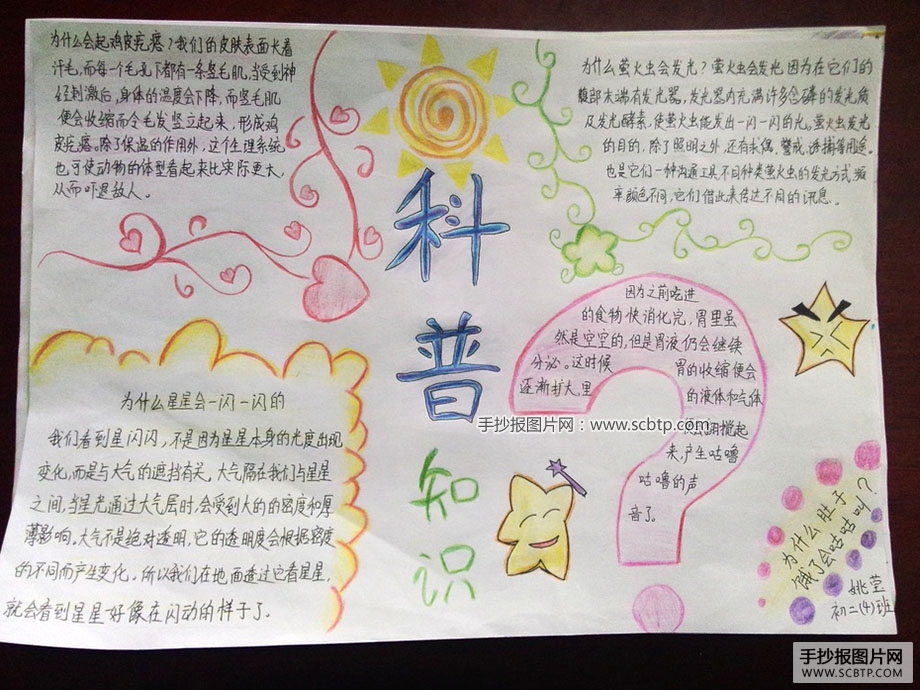 为什么会起鸡皮疙瘩?我们的皮肤表面长着
汗毛,而每一个毛孔下都有一条竖毛肌,当受到神
经刺激后,身体的温度会下降,而竖毛肌
便会收缩而令毛发竖立起来,形成鸡
皮疙瘩。除了保温的作用外,这个生理系统
也可使动物的体型看起来比实际更大,
从而吓退敌人。
科
普
知
识
为什么萤火虫会发光?萤火虫会发光因为在它们的
腹部末端有发光器,发光器内充满许多含磷的发光质
及发光酵素,使萤火虫能发出一闪一闪的光。萤火虫发光
的目的,除了照明之外,还有求偶、警戒、诱捕等用途。
也是它们一种沟通工具,不同种类萤火虫的发光方式,频
率颜色不同,它们借此来传达不同的讯息。
为什么星星会一闪一闪的
我们看到星闪闪,不是因为星星本身的光度出现
变化,而是与大气的遮挡有关。大气隔在我们与星星
之间,当星光通过大气层时,会受到大的的密度和厚
薄影响。大气不是绝对透明,它的透明度会根据密度
的不同而产生变化。所以我们在地面透过它看星星,
就会看到星星好像在闪动的样子了。
因为之前吃进
的食物快消化完,胃里虽
然是空空的,但是胃液仍会继续
分泌。这时候 胃的收缩便会
逐渐扩大,里 的液体和气体
搅起
来,产生咕噜
咕噜的声
音了。
为什么肚子
饿了会咕咕叫?
姚莹
初二(4)班
手抄报图片网:www.scbtp.com
手抄报图片网
WWW.SCBTP.COM